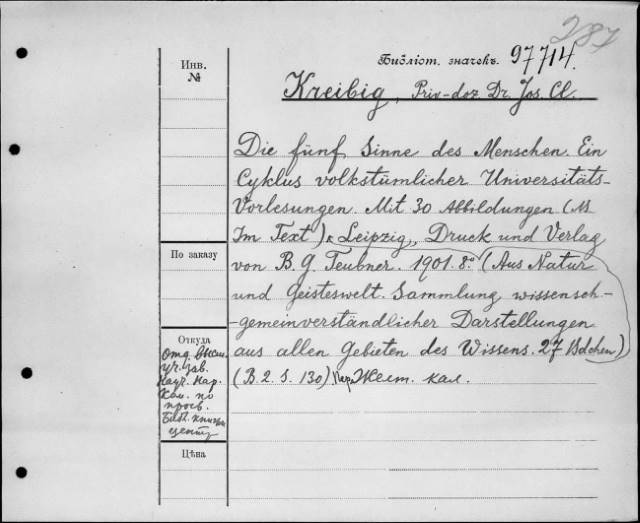 287
Библіот. значекъ. 97714.
Инв.
№
Kreibig, Priv-doz Dr. Jos. Cl.
Die fünf Sinne des Menschen. Ein
Cyklus volkstümlicher Universitäts-
Vorlesungen. Mit 30 Abbildungen (
Im Text). Leipzig, Druck und Verlag
von B. G. Teubner. 1901. 8.° (Aus Natur
und Geisteswelt. Sammlung wissensch-
-gemeinverständlicher Darstellungen
aus allen Gebieten des Wissens. 27 Bdchen)
(B. 2. S. 130) Желт. кал.
По заказу
Откуда
Отд.
Науч. Нар.
Ком. по
просв.
Библ.
центр
Цѣна